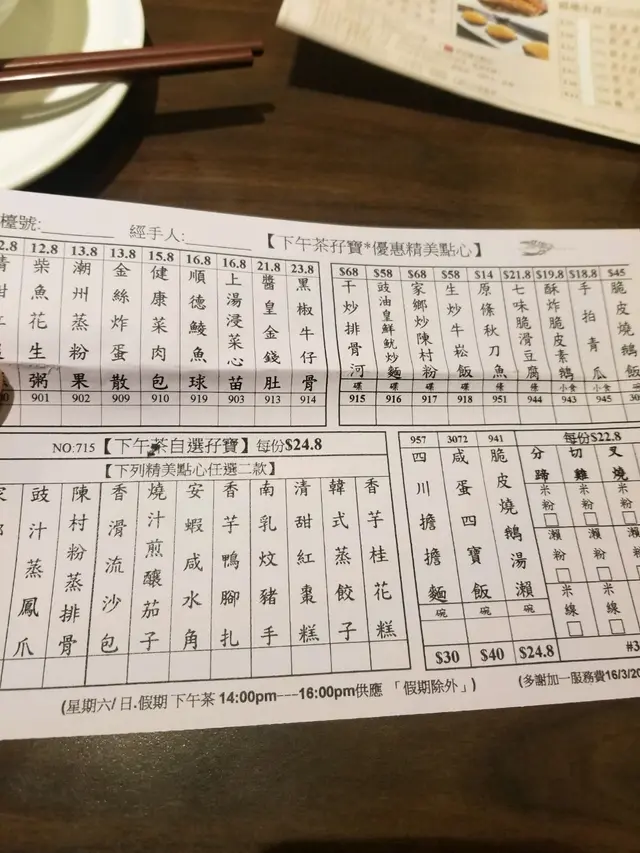 檯號:________ 經手人:________
【下午茶孖寶*優惠精美點心】
12.8 柴魚花生粥 901
13.8 潮州蒸粉果 902
13.8 金絲炸蛋散 909
15.8 健康菜肉包 910
16.8 順德鯪魚球 919
16.8 上湯浸菜心苗 903
21.8 醬皇金錢肚 913
23.8 黑椒牛仔骨 914
$68 干炒排骨河 碟 915
$58 豉油皇鮮魷炒麵 碟 916
$68 家鄉炒陳村粉 碟 917
$58 生炒牛崧飯 碟 918
$14 原條秋刀魚 條 951
$21.8 七味脆滑豆腐 條 944
$19.8 酥炸脆皮素鵝 小食 943
$18.8 手拍青瓜 小食 945
$45 脆皮燒鵝飯
NO:715【下午茶自選孖寶】每份$24.8
【下列精美點心任選二款】
豉汁蒸鳳爪
陳村粉蒸排骨
香滑流沙包
燒汁煎釀茄子
安蝦咸水角
香芋鴨腳扎
南乳炆豬手
清甜紅棗糕
韓式蒸餃子
香芋桂花糕
957 四川擔擔麵 碗 $30
3072 咸蛋四寶飯 碗 $40
941 脆皮燒鵝湯瀨 $24.8
每份$22.8
分蹄 米粉 瀨粉
切雞 米粉 瀨粉 米線
叉燒 米粉 瀨粉 米線
(星期六/日.假期下午茶 14:00pm---16:00pm供應 「假期除外」)
(多謝加一服務費16/3/20